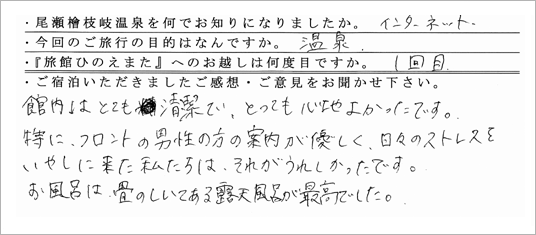 ・尾瀬檜枝岐温泉を何でお知りになりましたか。 インターネット.
・今回のご旅行の目的はなんですか。 温泉
・『旅館ひのえまた』へのお越しは何度目ですか。 1回目.
・ご宿泊いただきましたご感想・ご意見をお聞かせ下さい。
館内はとても清潔で、とっても心地よかったです。
特に、フロントの男性の方の案内が優しく、日々のストレスを
いやしに来た私たちは、それがうれしかったです。
お風呂は、畳のしいてある露天風呂が最高でした。